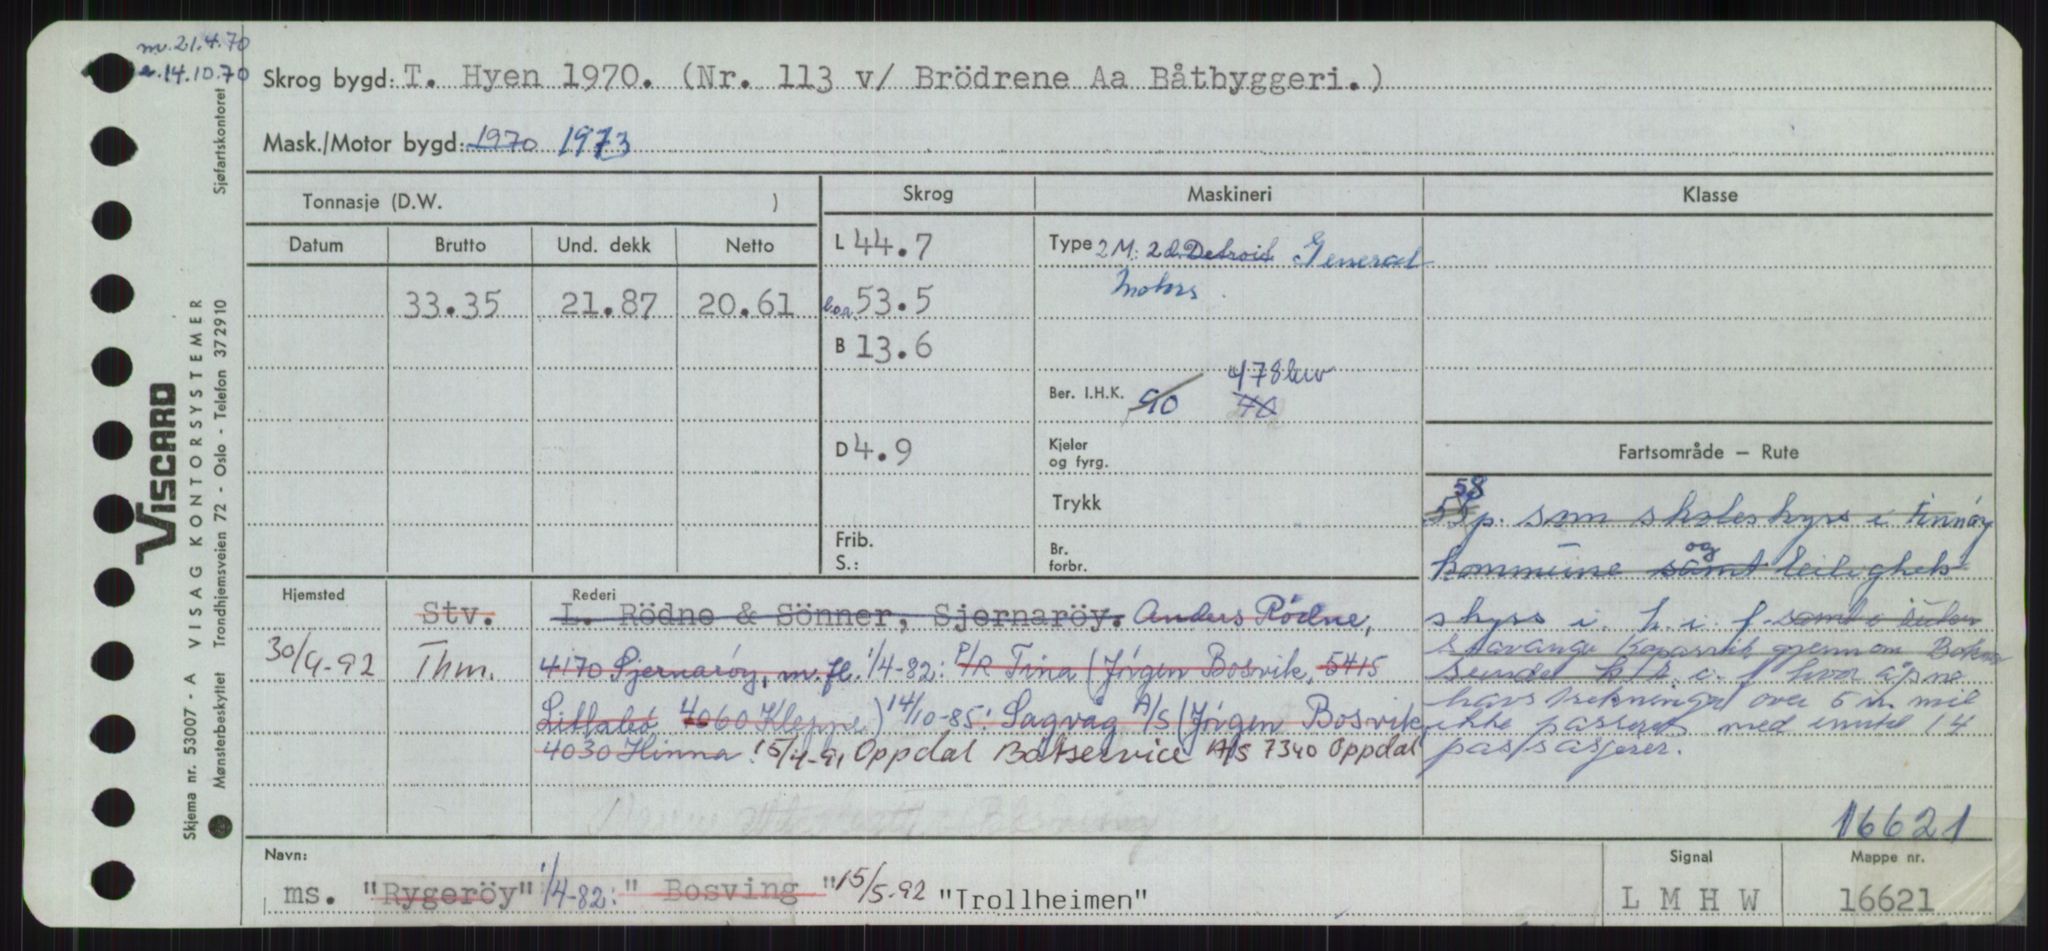 m. 21.4.70
14.10.70
Skrog bygd: T. Hyen 1970. (Nr. 113 v/ Brödrene Aa Båtbyggeri.)
Mask./Motor bygd: 1970 1973
Tonnasje (D.W. )
Skrog
Maskineri
Klasse
Datum Brutto Und. dekk Netto
33.35 21.87 20.61
L 44.7
loa. 53.5
B 13.6
D 4.9
Frib.
S.:
Type 2 M: 2 d. Detroit General
Motors.
Ber. I.H.K. 90 40 478 bhv
Kjeler
og fyrg.
Trykk
Br.
forbr.
Fartsområde — Rute
58
p. som skoleskyss i Finnöy
kommune samt og leilighets-
skyss i. h. i. f. samt i ruten
Stavanger Kopervik gjennom Bokn
sundet i. f hvor åpne
havstrekninger over 5 n. mil
ikke passeres med inntil 14
passasjerer.
16621
Hjemsted
Stv.
30/9-92 Thm.
Rederi
L. Rödne & Sönner, Sjernaröy. Anders Rödne,
4170 Sjernaröy, m.fl. 1/4-82: P/R Tina (Jörgen Bosvik, 5415
Litlabö 4060 Kleppe) 14/10-85: Sagvåg A/S (Jörgen Bosvik,
4030 Hinna. 15/4-91 Oppdal Båtservice A/S 7340 Oppdal
Navn:
ms. "Rygeröy" 1/4-82: "Bosving" 15/5-92 "Trollheimen"
Signal
L M H W
Mappe nr.
16621
VISCARD
VISAG KONTORSYSTEMER
Sjøfartskontoret
Trondhjemsveien 72 - Oslo - Telefon 372910
Skjema nr. 53007 - A
Mønsterbeskyttet